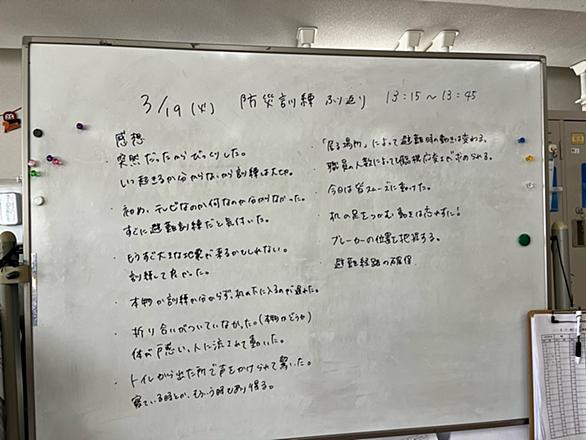 3/19(火) 防災訓練 ふり返り 13:15～13:45
感想
・突然だったからびっくりした。
いつ起きるか分からないから訓練は大切。
・初め、テレビなのか何なのか分からなかった。
すぐに避難訓練だと気付いた。
・もうすぐ大きな地震が来るかもしれない。
訓練して良かった。
・本物か訓練か分からず、机の下に入るのが遅れた。
・折り合いがついていなかった。(本物かどうか)
体が戸惑い、人に流されて動いた。
・トイレから出た所で声をかけられて驚いた。
寝ている時とか、そういう時もあり得る。
・「居る場所」によって避難時の動きは変わる。
職員の人数によっても臨機応変さが求められる。
・今日は皆スムーズに動けた。
・机の足をつかむ動きは忘れずに!
・ブレーカーの位置を把握する。
・避難経路の確保